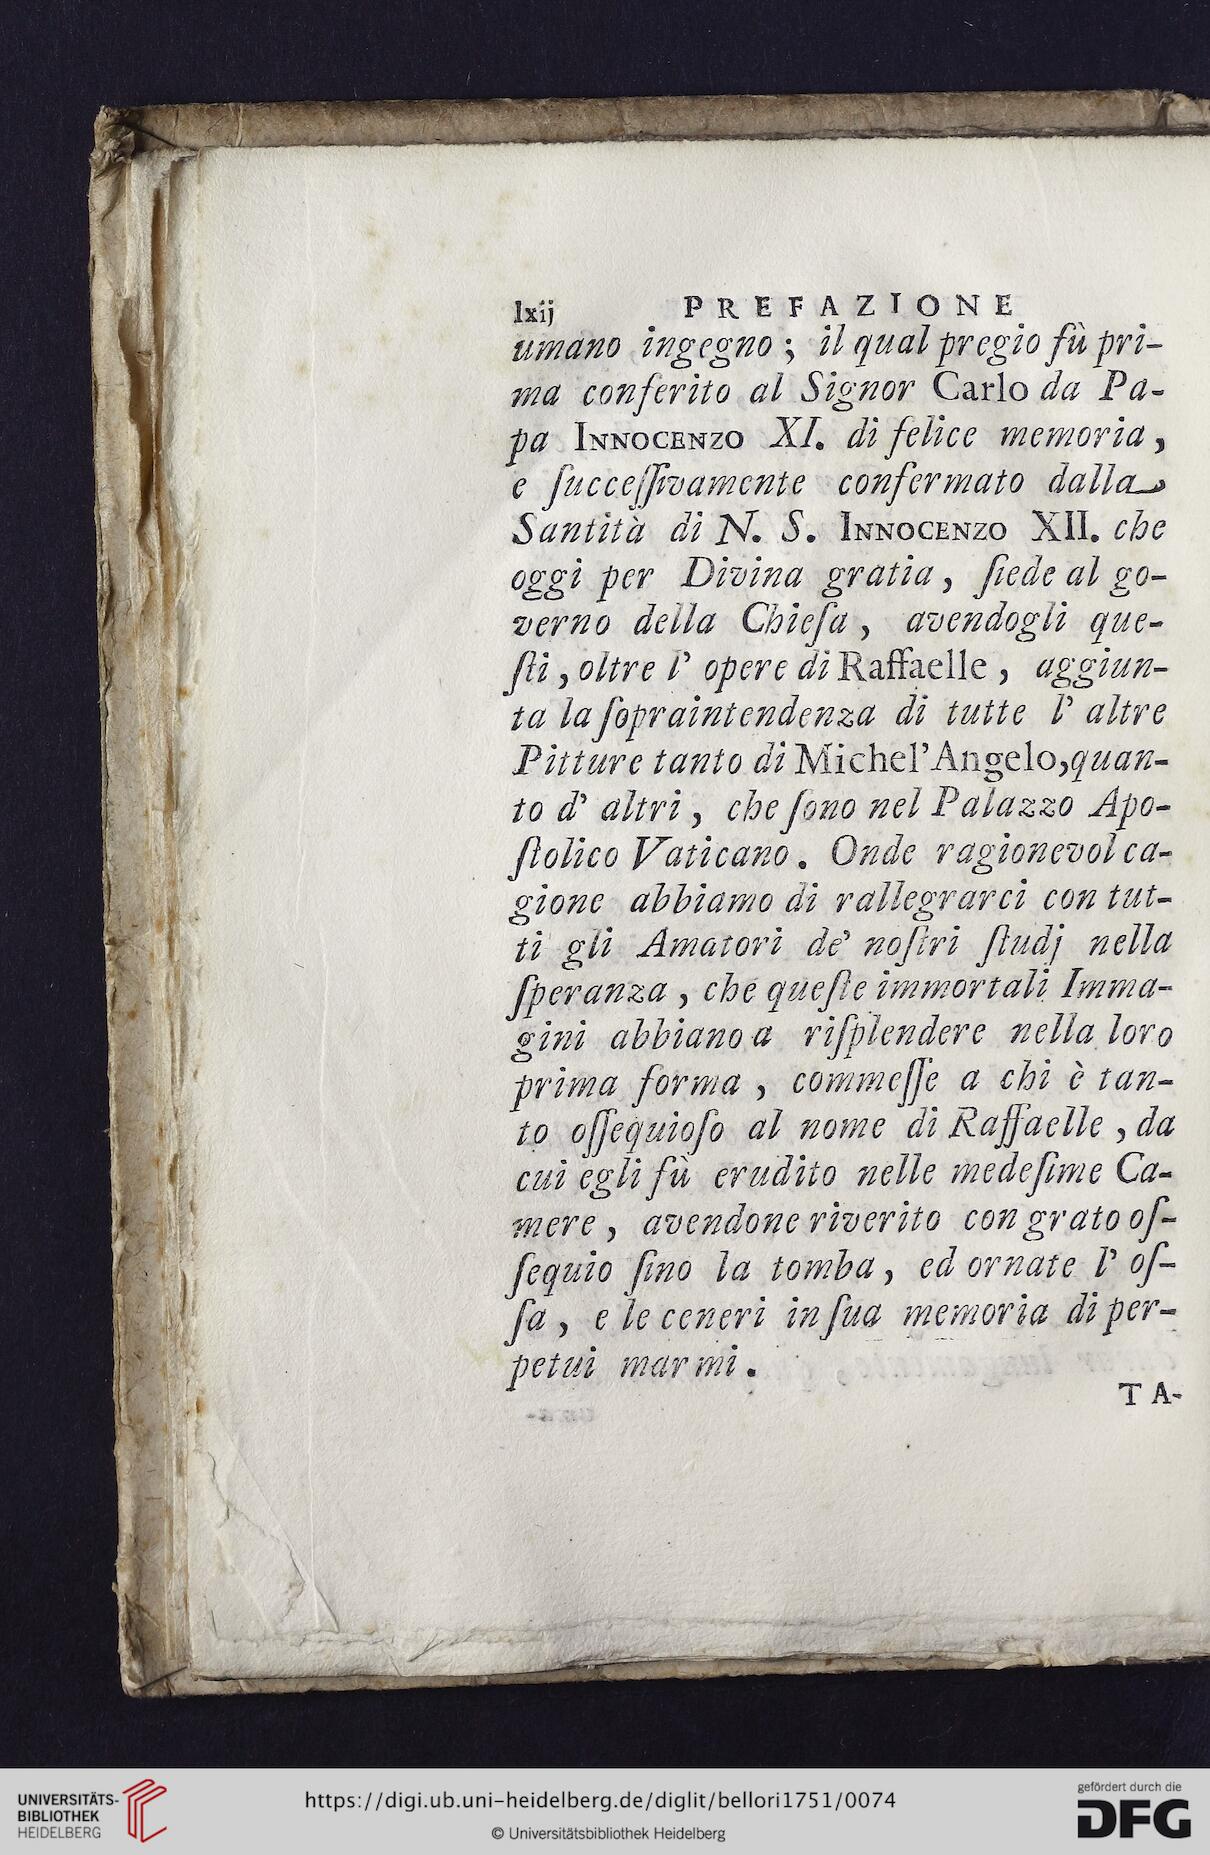 lxij PREFAZIONE
umano ingegno; il qual pregio fù pri-
ma conferito al Signor Carlo da Pa-
pa INNOCENZO XI. di felice memoria,
e ſucceſſivamente confermato dalla
Santità di N. S. INNOCENZO XII. che
oggi per Divina gratia, ſiede al go-
verno della Chieſa, avendogli que-
ſti, oltre l' opere di Raffaelle, aggiun-
ta la ſopraintendenza di tutte l' altre
Pitture tanto di Michel'Angelo, quan-
to d' altri, che ſono nel Palazzo Apo-
ſtolico Vaticano. Onde ragionevol ca-
gione abbiamo di rallegrarci con tut-
ti gli Amatori de' noſtri ſtudj nella
ſperanza, che queſte immortali Imma-
gini abbiano a riſplendere nella loro
prima forma, commeſſe a chi è tan-
to oſſequioſo al nome di Raffaelle, da
cui egli fù erudito nelle medeſime Ca-
mere, avendone riverito con grato oſ-
ſequio ſino la tomba, ed ornate l' oſ-
ſa, e le ceneri in ſua memoria di per-
petui marmi.
TA-
UNIVERSITÄTS-
BIBLIOTHEK
HEIDELBERG
https://digi.ub.uni-heidelberg.de/diglit/bellori1751/0074
© Universitätsbibliothek Heidelberg
gefördert durch die
DFG